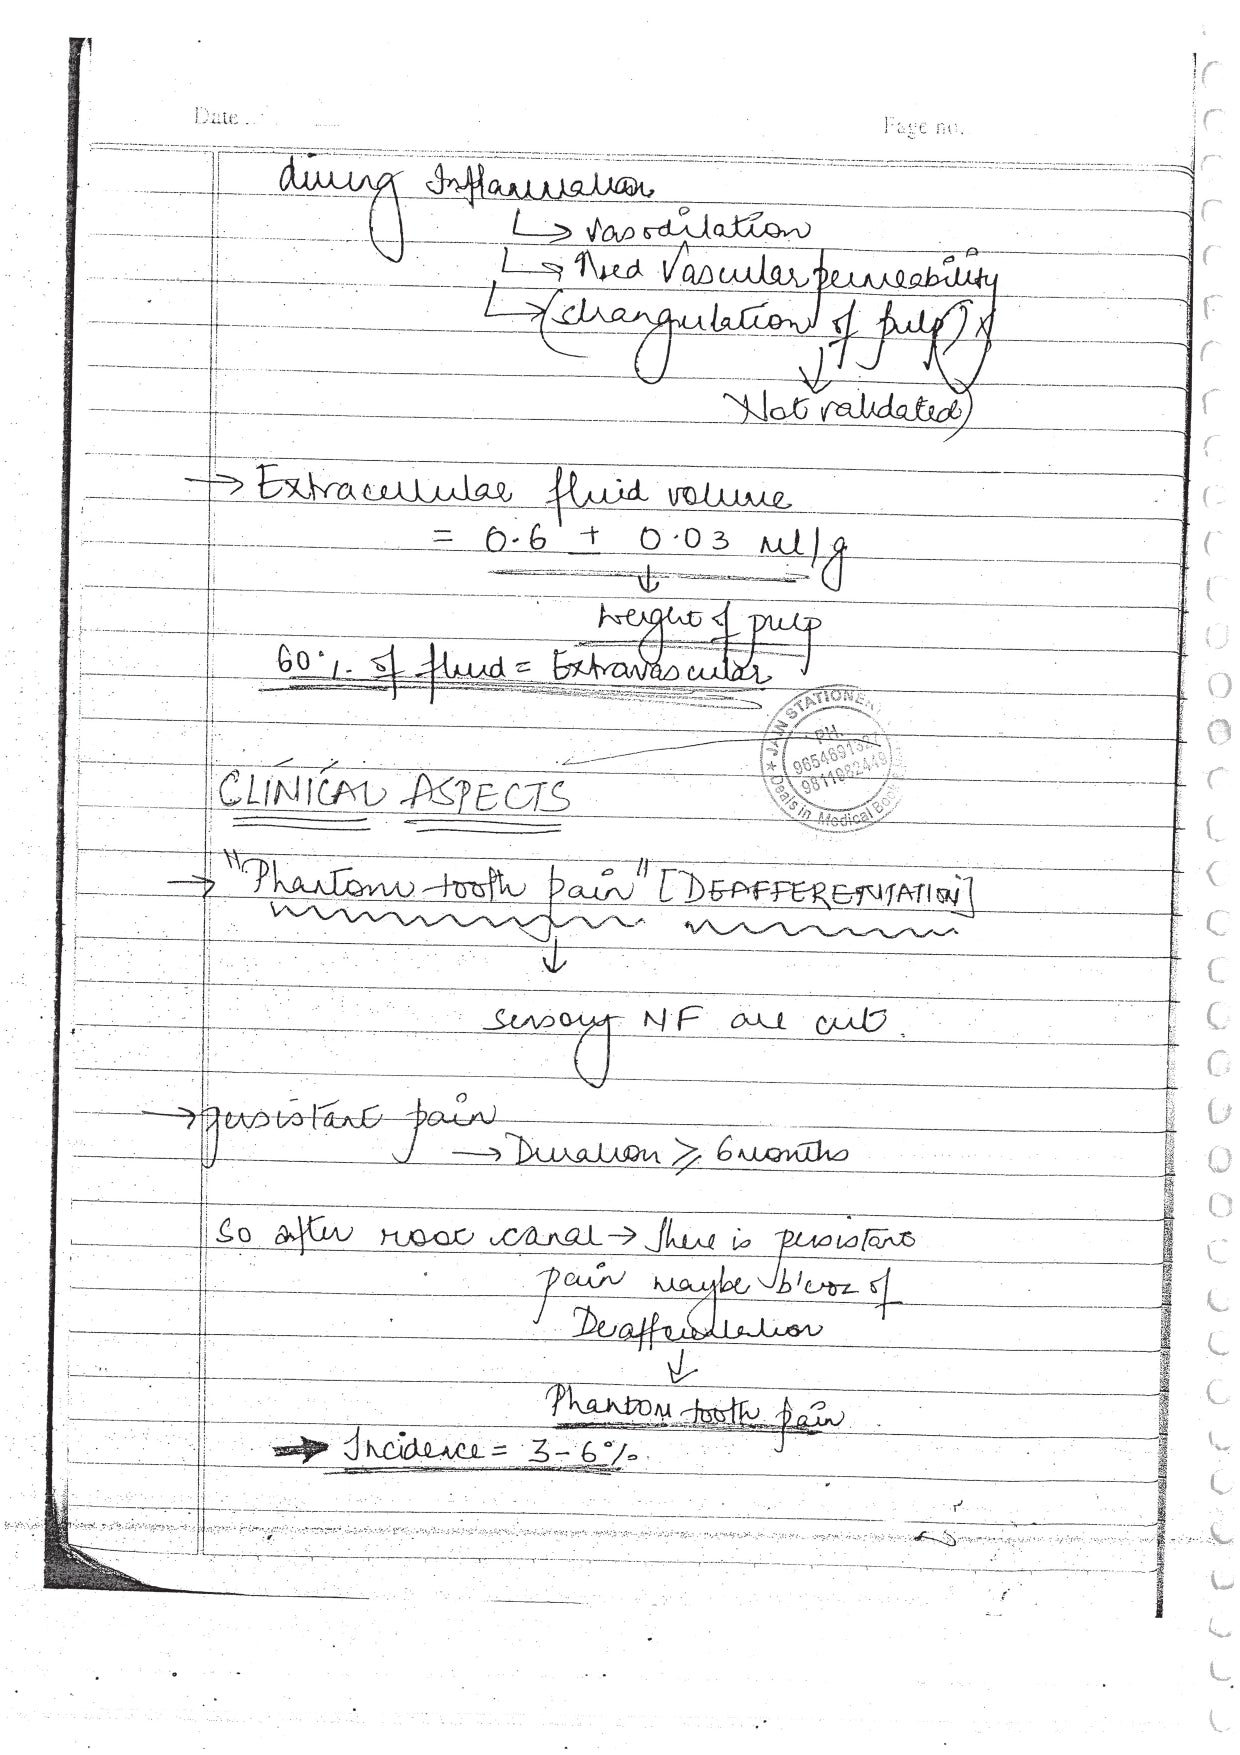 Date
Page no.
during Inflammation
↳ vasodilation
↳ ↑sed Vascular permeability
↳ (strangulation of pulp) X
↓
Not validated)
→ Extracellular fluid volume
= 0.6 ± 0.03 ml/g
↓
weight of pulp
60% of fluid = Extravascular
JAIN STATIONE
PH.
9811982448
Deals in Medical Book
CLINICAL ASPECTS
→ "Phantom tooth pain" [DEAFFERENTATION]
↓
sensory NF are cut.
→ persistant pain
→ Duration ≥ 6 months
So after root canal → there is persistant
pain maybe b'coz of
Deafferentation
↓
Phantom tooth pain
→ Incidence = 3-6%.